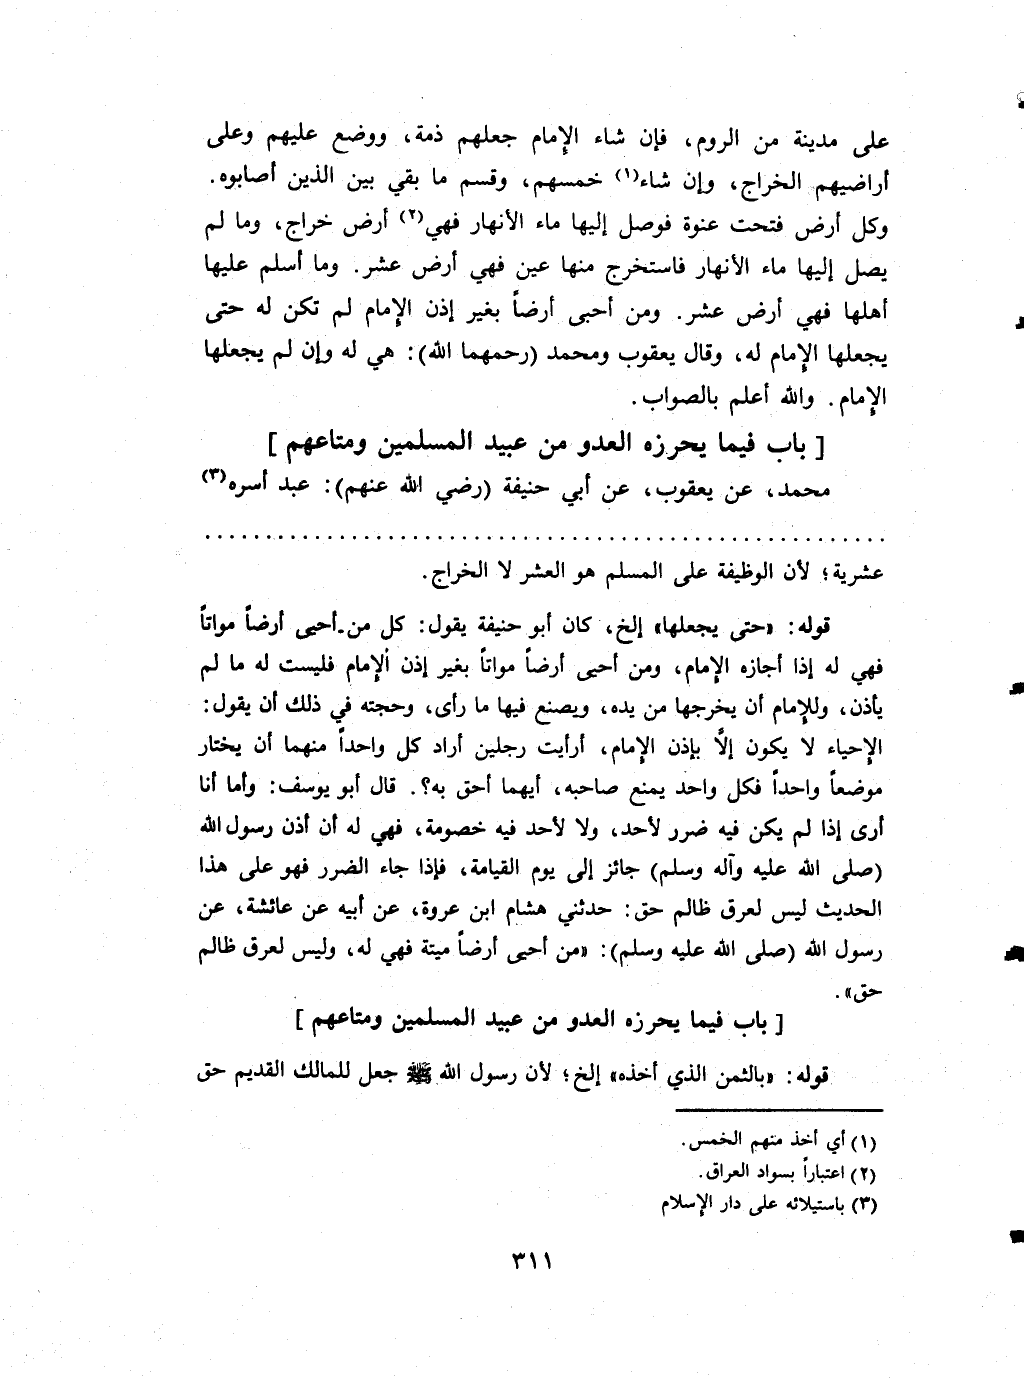 على مدينة من الروم، فإن شاء الإمام جعلهم ذمة، ووضع عليهم وعلى
أراضيهم الخراج، وإن شاء(١) خمسهم، وقسم ما بقي بين الذين أصابوه.
وكل أرض فتحت عنوة فوصل إليها ماء الأنهار فهي(٢) أرض خراج، وما لم
يصل إليها ماء الأنهار فاستخرج منها عين فهي أرض عشر. وما أسلم عليها
أهلها فهي أرض عشر. ومن أحبى أرضاً بغير إذن الإمام لم تكن له حتى
يجعلها الإمام له، وقال يعقوب ومحمد (رحمهما الله): هي له وإن لم يجعلها
الإمام. والله أعلم بالصواب.
[ باب فيما يحرزه العدو من عبيد المسلمين ومتاعهم ]
محمد، عن يعقوب، عن أبي حنيفة (رضي الله عنهم): عبد أسره(٣)
عشرية؛ لأن الوظيفة على المسلم هو العشر لا الخراج.
قوله: «حتى يجعلها» إلخ، كان أبو حنيفة يقول: كل من أحيى أرضاً مواتاً
فهي له إذا أجازه الإمام، ومن أحيى أرضاً مواتاً بغير إذن الإمام فليست له ما لم
يأذن، وللإمام أن يخرجها من يده، ويصنع فيها ما رأى، وحجته في ذلك أن يقول:
الإحياء لا يكون إلَّا بإذن الإمام، أرأيت رجلين أراد كل واحداً منهما أن يختار
موضعاً واحداً فكل واحد يمنع صاحبه، أيهما أحق به؟. قال أبو يوسف: وأما أنا
أرى إذا لم يكن فيه ضرر لأحد، ولا لأحد فيه خصومة، فهي له أن أذن رسول الله
(صلى الله عليه وآله وسلم) جائز إلى يوم القيامة، فإذا جاء الضرر فهو على هذا
الحديث ليس لعرق ظالم حق: حدثني هشام ابن عروة، عن أبيه عن عائشة، عن
رسول الله (صلى الله عليه وسلم): «من أحيى أرضاً ميتة فهي له، وليس لعرق ظالم
حق».
[ باب فيما يحرزه العدو من عبيد المسلمين ومتاعهم ]
قوله: «بالثمن الذي أخذه» إلخ؛ لأن رسول الله ﷺ جعل للمالك القديم حق
(١) أي أخذ منهم الخمس.
(٢) اعتباراً بسواد العراق.
(٣) باستيلائه على دار الإسلام
٣١١